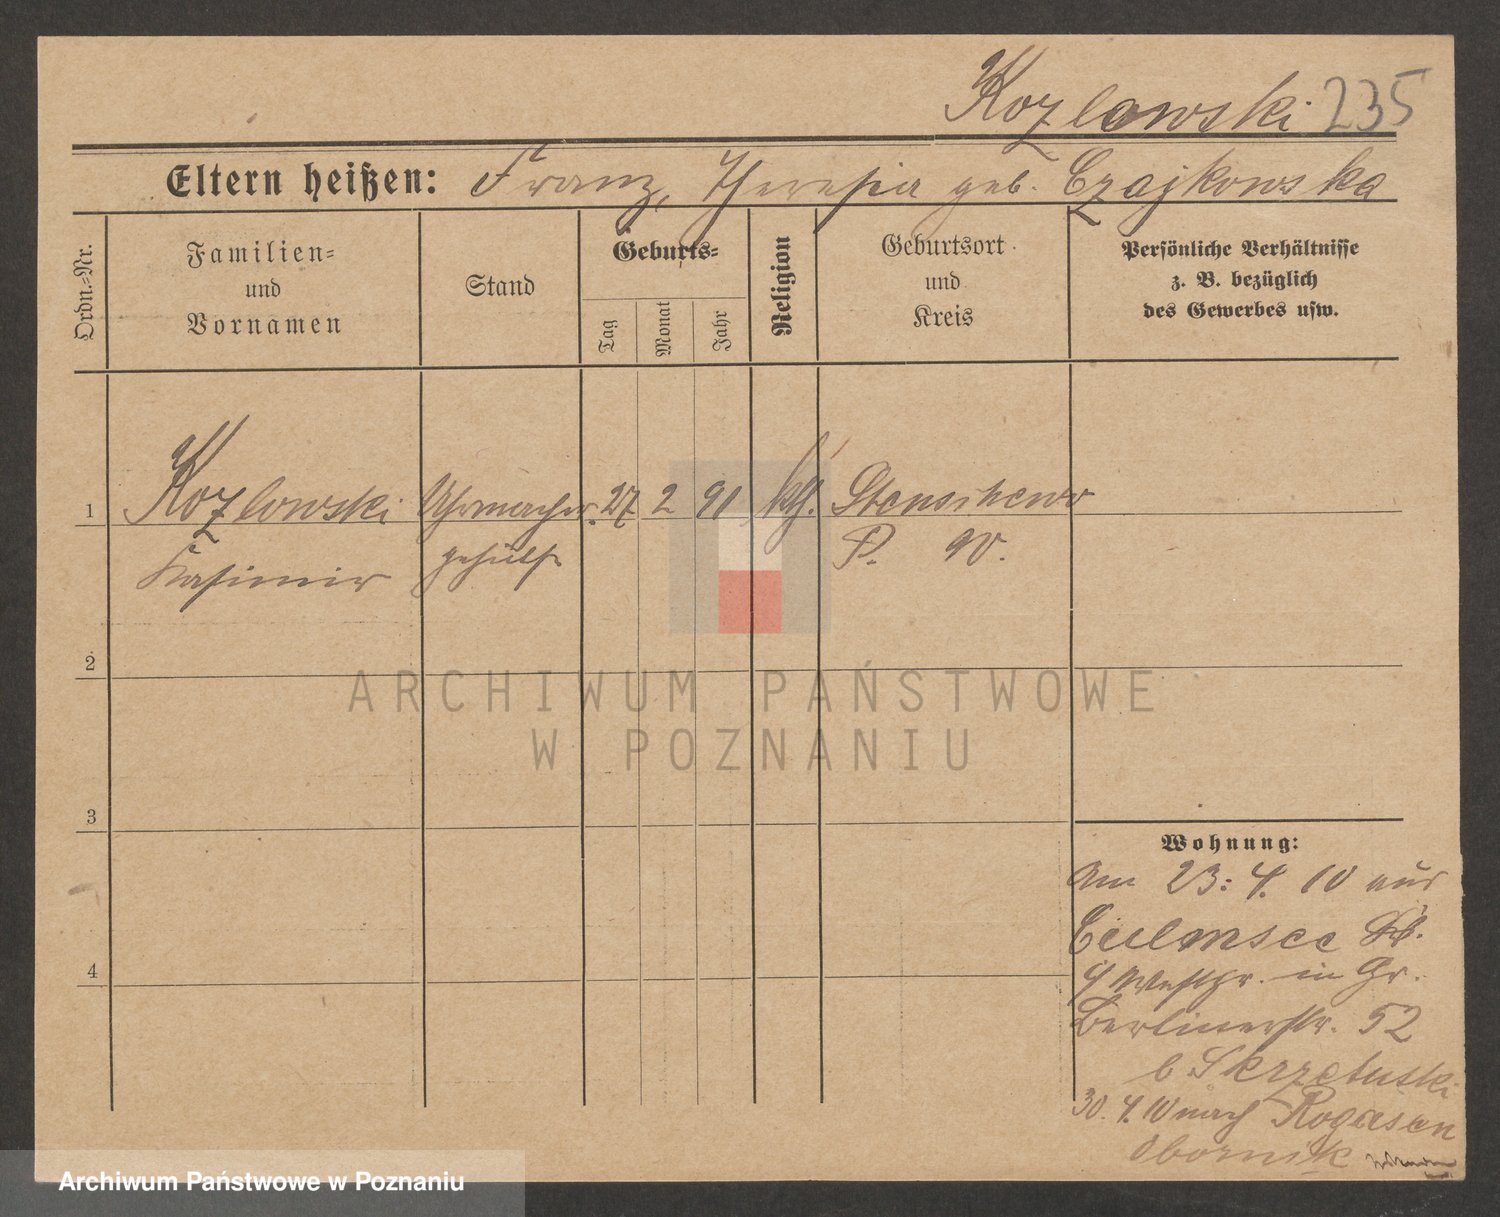 Kozlowski 235
Eltern heißen: Franz, Theresia geb. Czajkowska
Ordn.=Nr.
Familien= und Vornamen
Stand
Geburts=
Tag
Monat
Jahr
Religion
Geburtsort und Kreis
Persönliche Verhältnisse
z. B. bezüglich
des Gewerbes usw.
1 Kozlowski Uhrmacher 27 2 91 kth. Stenschewo
Kasimir gehülfe P. W.
2
3
4
Wohnung:
Am 23. 4. 10 aus
Culmsee
Westpr. in Gr.
Berlinerstr. 52
b Skrzetuski
30. 4. 10 nach Rogasen
Obornik
ARCHIWUM PAŃSTWOWE
W POZNANIU
Archiwum Państwowe w Poznaniu